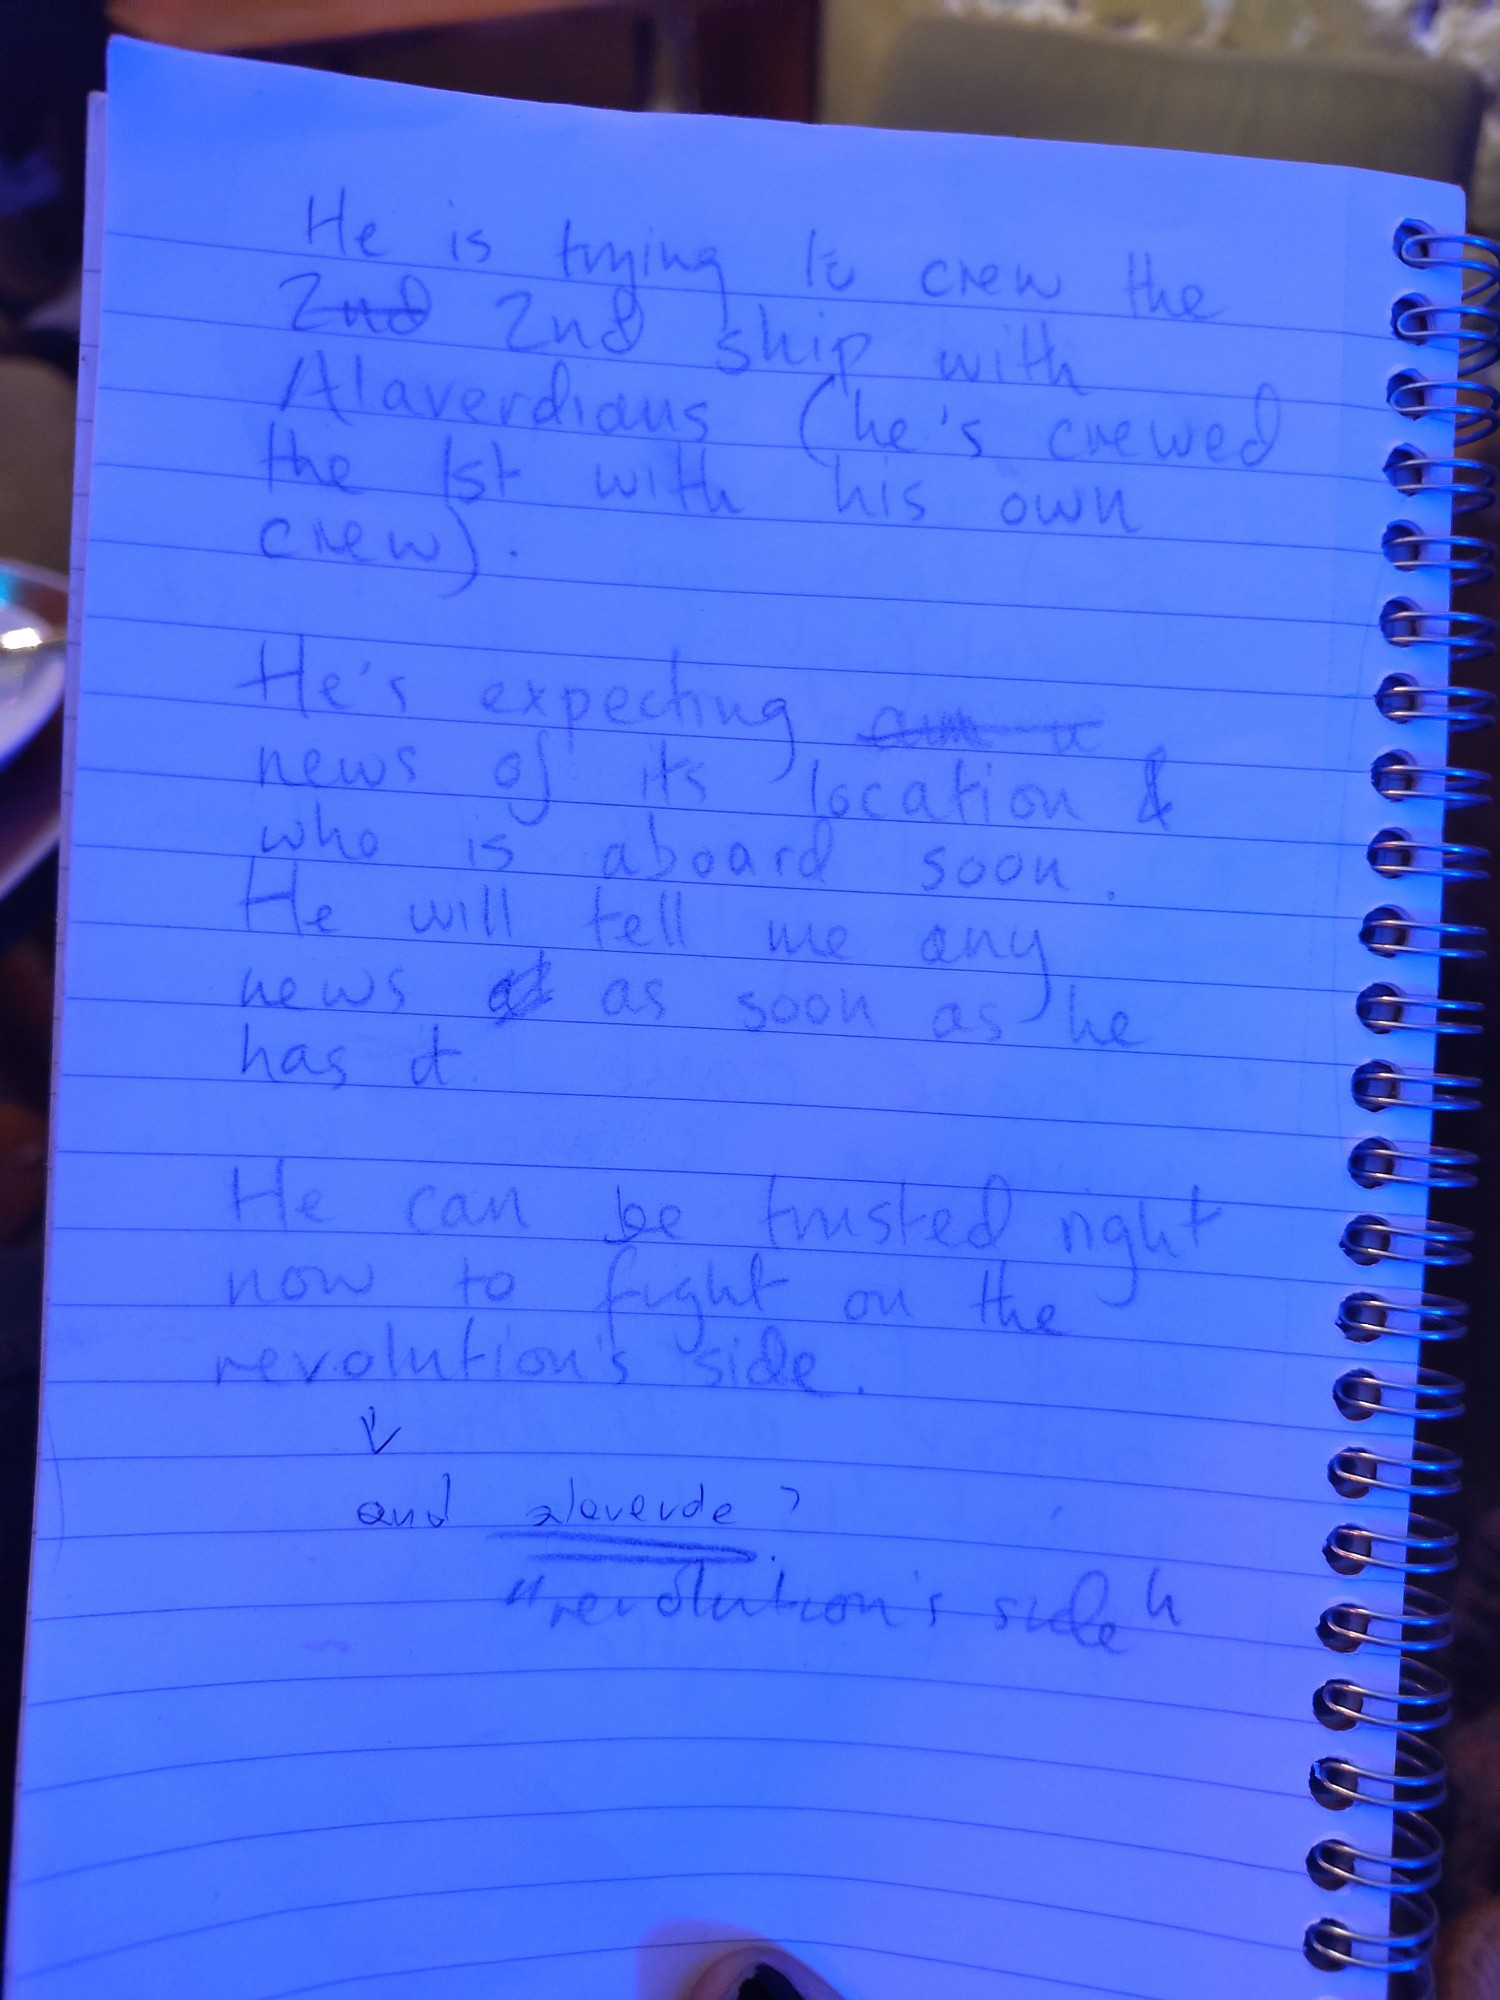 He is trying to crew the
2nd 2nd ship with
Alaverdians (he's crewed
the 1st with his own
crew).
He's expecting
news of its location &
who is aboard soon.
He will tell me any
news as soon as he
has it.
He can be trusted right
now to fight on the
revolution's side.
and alaverde ?
"revolution's side"